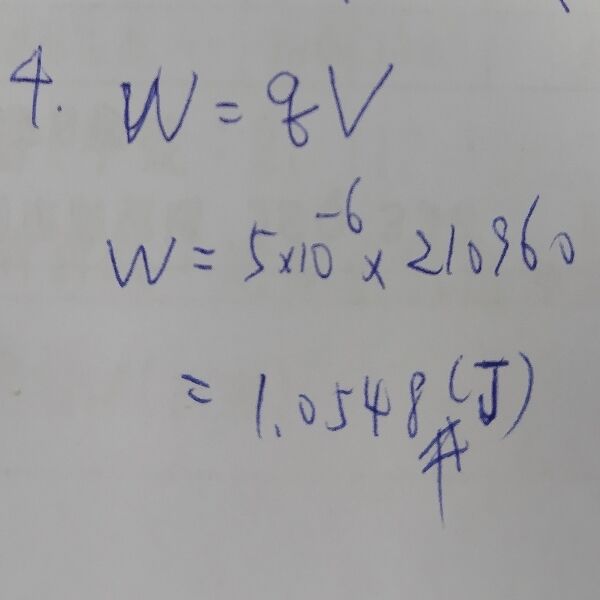 4. W = qV
W = 5×10⁻⁶ × 210960
= 1.0548 (J)
#